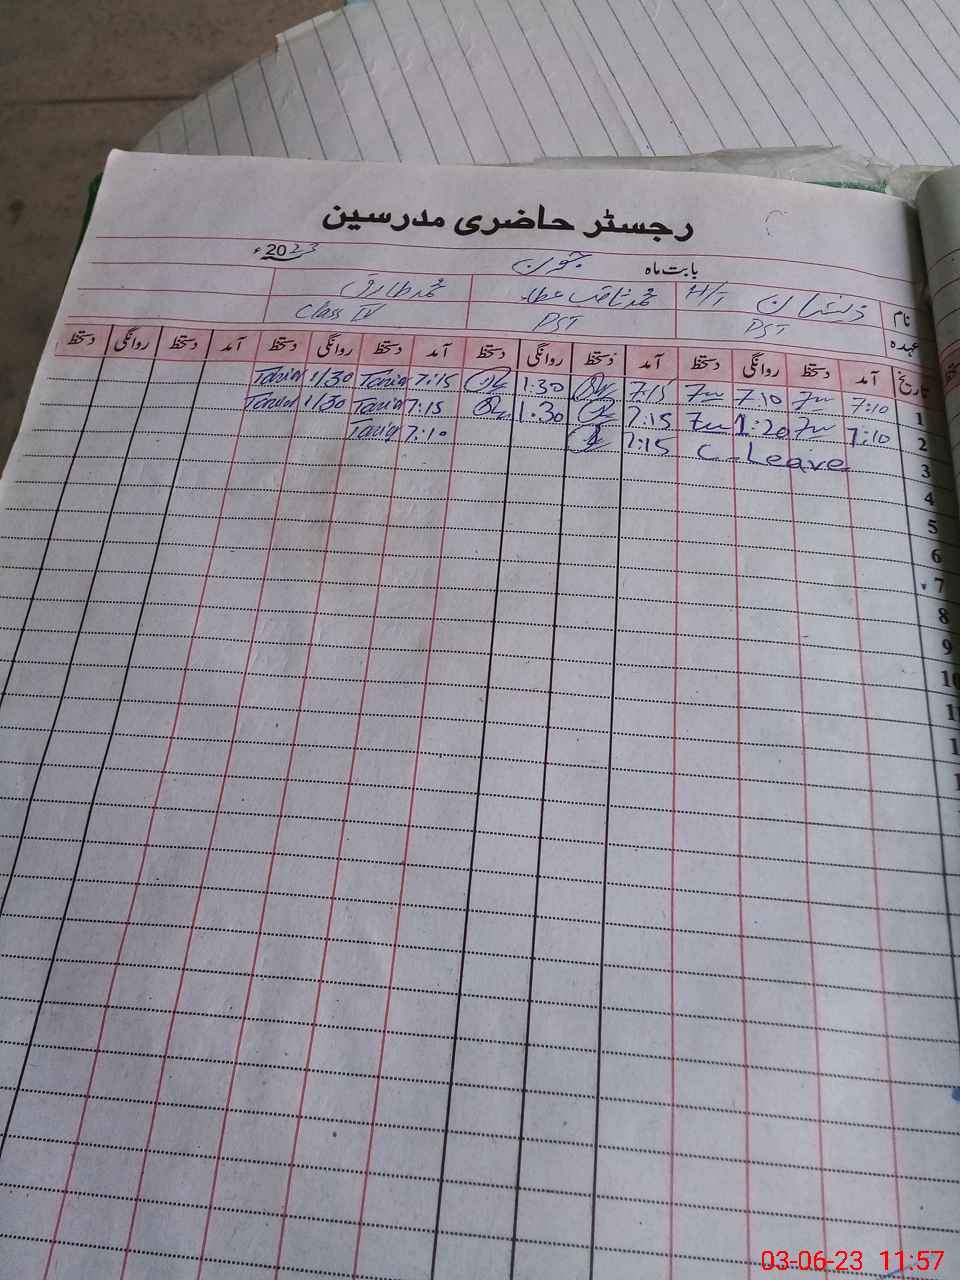 رجسٹر حاضری مدرسین
بابت ماہ جون 2023ء
نام H/T محمد ثاقب عطاء محمد طارق
عہدہ PST PST Class IV
تاریخ آمد دستخط روانگی دستخط آمد دستخط روانگی دستخط آمد دستخط روانگی دستخط آمد دستخط روانگی دستخط
1 7:10 7:10 7:15 1:30 7:15 Tariq 1:30 Tariq
2 7:10 1:20 7:15 1:30 7:15 Tariq 1:30 Tariq
3 C-Leave 7:15 7:10 Tariq
4
5
6
7
8
9
10
03-06-23 11:57